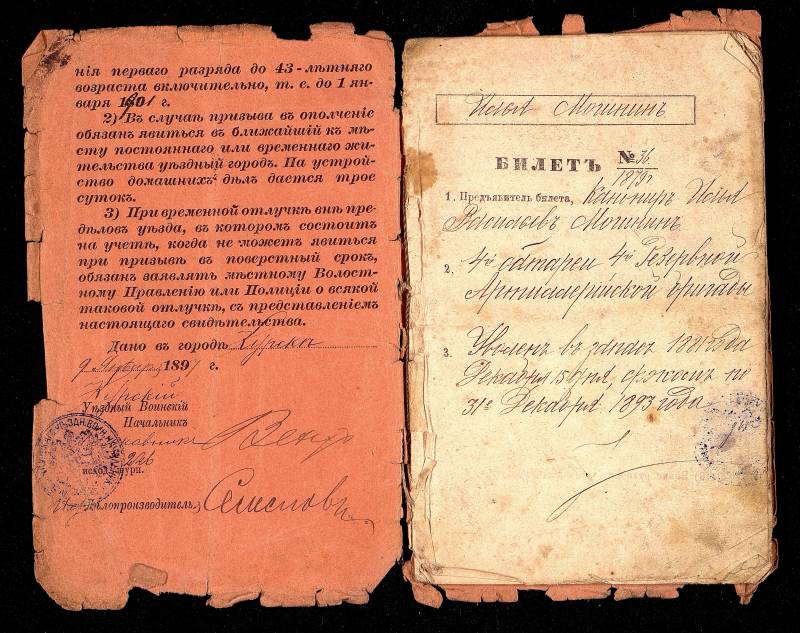 нія перваго разряда до 43-лѣтняго
возраста включительно, т. е. до 1 ян-
варя 1901 г.
2) Въ случаѣ призыва въ ополченіе
обязанъ явиться въ ближайшій къ мѣ-
сту постояннаго или временнаго жи-
тельства уѣздный городъ. На устрой-
ство домашнихъ дѣлъ дается трое
сутокъ.
3) При временной отлучкѣ внѣ пре-
дѣловъ уѣзда, въ которомъ состоитъ
на учетѣ, когда не можетъ явиться
при призывѣ въ поверстный срокъ,
обязанъ заявлять мѣстному Волост-
ному Правленію или Полиціи о всякой
таковой отлучкѣ, съ представленіемъ
настоящаго свидѣтельства.
Дано въ городѣ Курскѣ
9 1897 г.
Курскій
Уѣздный Воинскій
Начальникъ
исход. журн.
Дѣлопроизводитель,
Илья Мошнинъ
БИЛЕТЪ № 36
1879 г
1. Предъявитель билета, канониръ Илья
Васильевъ Мошнинъ
2. 4й батареи 4й Резервной
Артиллерійской бригады
3. Уволенъ въ запасъ 1881 года
Декабря 15 дня, срокомъ по
31е Декабря 1893 года